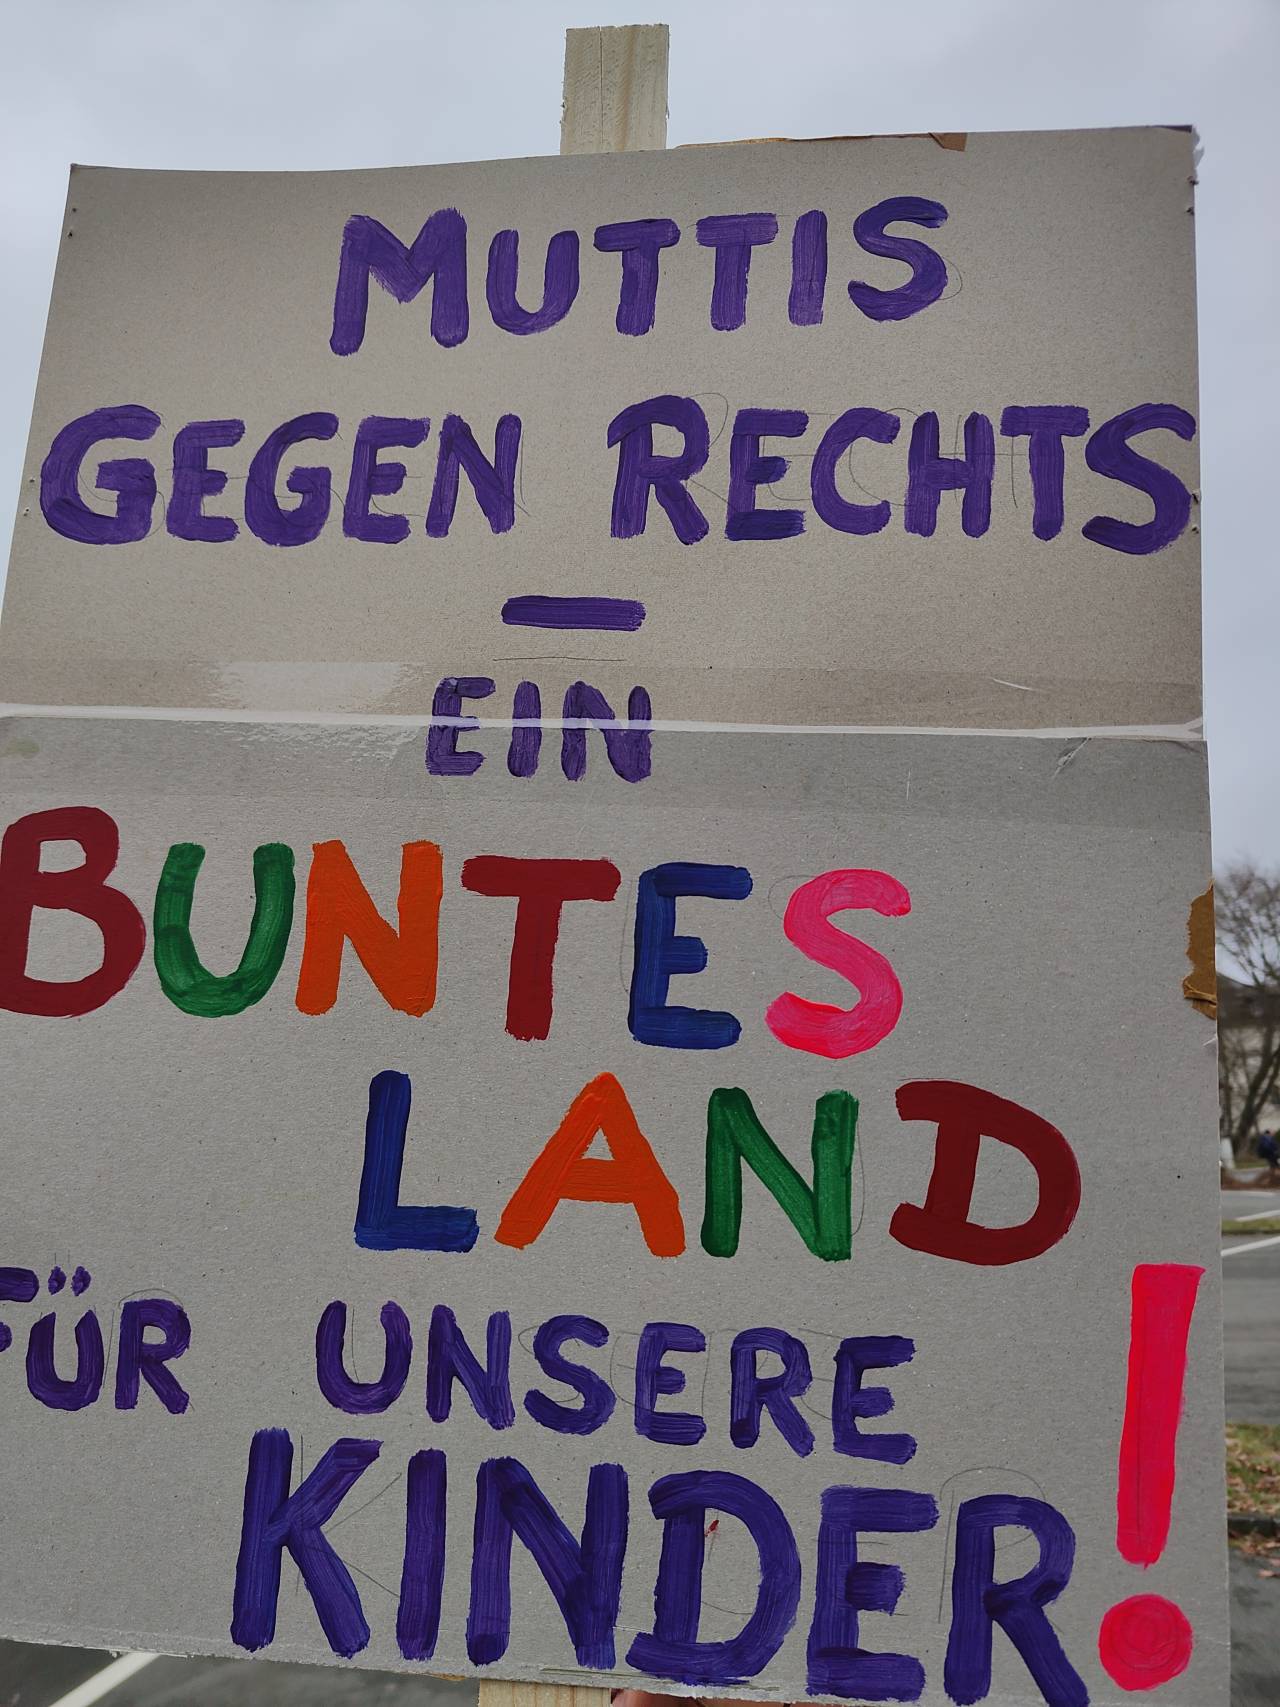 MUTTIS
GEGEN RECHTS
–
EIN
BUNTES
LAND
FÜR UNSERE
KINDER!